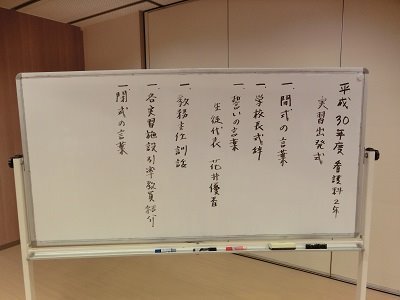 平成30年度 看護科2年
実習出発式
一、開式の言葉
一、学校長式辞
一、誓いの言葉
生徒代表 花井優香
一、教務主任訓話
一、各実習施設引率教員紹介
一、閉式の言葉